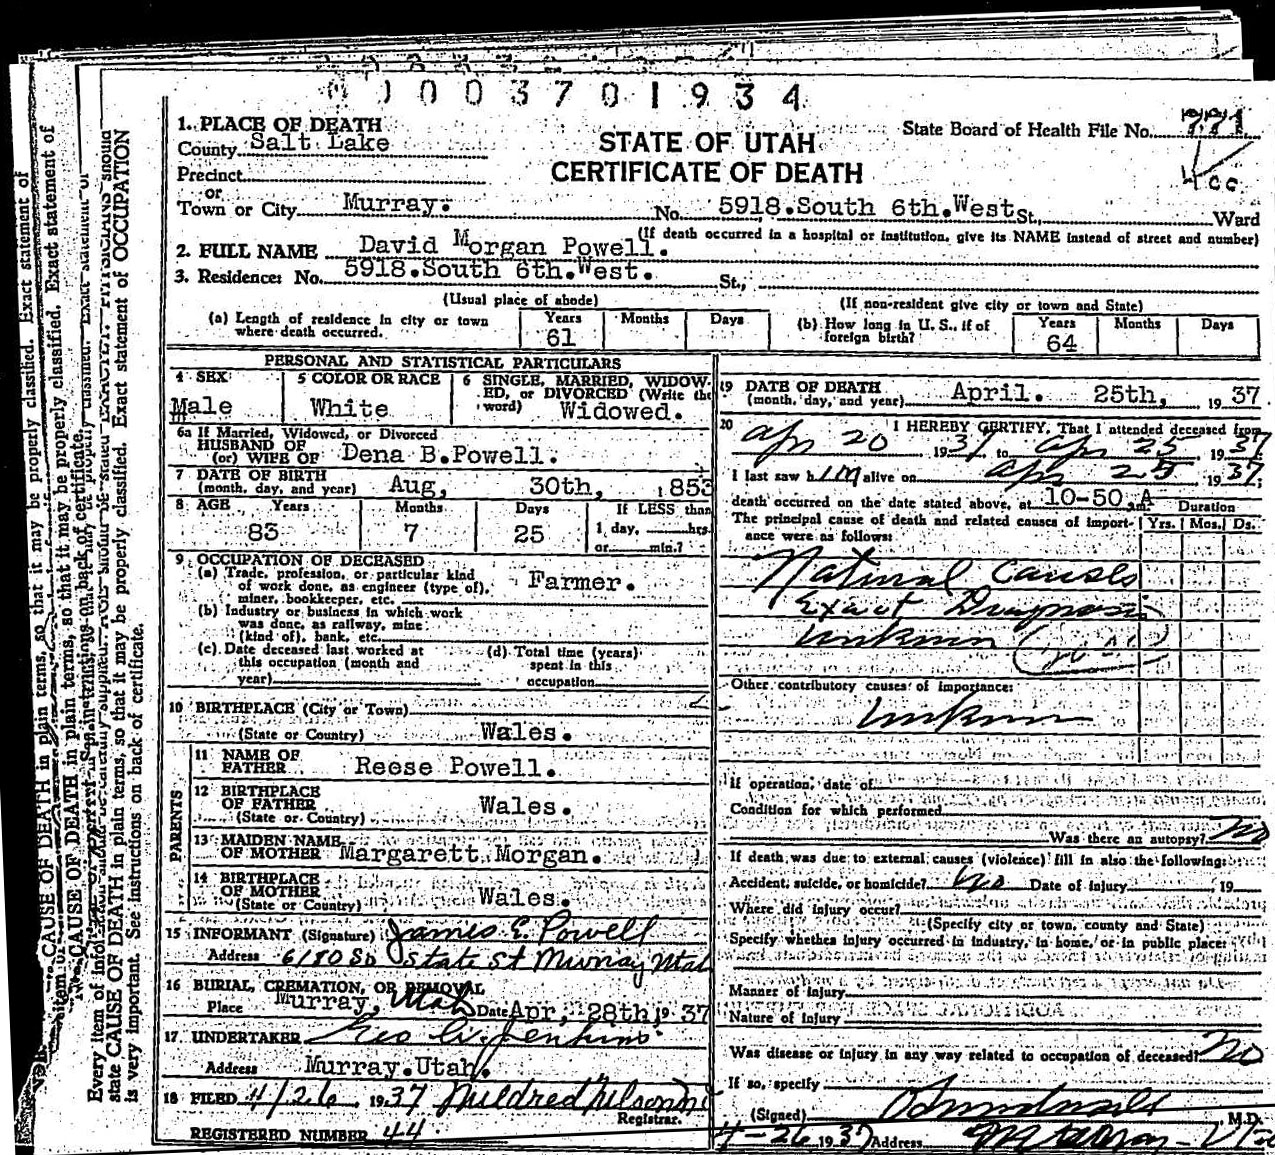 0 0 3 7 0 1 9 3 4
1. PLACE OF DEATH
County Salt Lake
STATE OF UTAH
CERTIFICATE OF DEATH
State Board of Health File No.
400
Precinct
or
Town or City Murray. No. 5918.South 6th.West St., Ward
(If death occurred in a hospital or institution, give its NAME instead of street and number)
2. FULL NAME David Morgan Powell.
3. Residence: No. 5918.South 6th.West. St.,
(Usual place of abode) (If non-resident give city or town and State)
(a) Length of residence in city or town where death occurred. Years 61 Months Days
(b) How long in U. S., if of foreign birth? Years 64 Months Days
PERSONAL AND STATISTICAL PARTICULARS
4 SEX Male
5 COLOR OR RACE White
6 SINGLE, MARRIED, WIDOWED, or DIVORCED (Write the word) Widowed.
6a If Married, Widowed, or Divorced
HUSBAND OF
(or) WIFE OF Dena B.Powell.
7 DATE OF BIRTH
(month, day, and year) Aug, 30th, 1853
8 AGE Years 83 Months 7 Days 25 If LESS than 1 day, hrs or min.?
9 OCCUPATION OF DECEASED
(a) Trade, profession, or particular kind
of work done, as engineer (type of),
miner, bookkeeper, etc. Farmer.
(b) Industry or business in which work
was done, as railway, mine
(kind of), bank, etc.
(c) Date deceased last worked at
this occupation (month and
year)
(d) Total time (years)
spent in this
occupation
10 BIRTHPLACE (City or Town)
(State or Country) Wales.
PARENTS
11 NAME OF
FATHER Reese Powell.
12 BIRTHPLACE
OF FATHER
(State or Country) Wales.
13 MAIDEN NAME
OF MOTHER Margarett Morgan.
14 BIRTHPLACE
OF MOTHER
(State or Country) Wales.
15 INFORMANT (Signature) James E. Powell
Address 6180 So State St Murray Utah
16 BURIAL, CREMATION, OR REMOVAL
Place Murray, Utah Date Apr, 28th 1937
17 UNDERTAKER Jenkins
Address Murray.Utah.
18 FILED 4/26, 1937 Mildred Nelson
Registrar.
REGISTERED NUMBER 44
19 DATE OF DEATH
(month, day, and year) April. 25th, 1937.
20 I HEREBY CERTIFY, That I attended deceased from
Apr 20 1937 to Apr 25 1937
I last saw him alive on Apr 25 1937;
death occurred on the date stated above, at 10-50 A m. Duration
The principal cause of death and related causes of importance were as follows: Yrs. Mos. Ds.
Natural Causes
Exact Diagnosis
unknown
Other contributory causes of importance:
unknown
If operation, date of
Condition for which performed
Was there an autopsy? No
If death was due to external causes (violence) fill in also the following:
Accident, suicide, or homicide? No Date of injury , 19
Where did injury occur?
(Specify city or town, county and State)
Specify whether injury occurred in industry, in home, or in public place:
Manner of Injury
Nature of Injury
Was disease or injury in any way related to occupation of deceased? No
If so, specify
(Signed) M.D.
4-26 1937 Address Murray - Utah
Every item of information
state CAUSE OF DEATH in plain terms, so that it may be properly classified. Exact statement of OCCUPATION
is very important. See instructions on back of certificate.